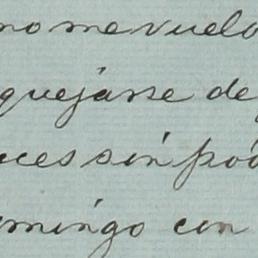 no me vuelo
quejarse de
ces sin pod
mingo con